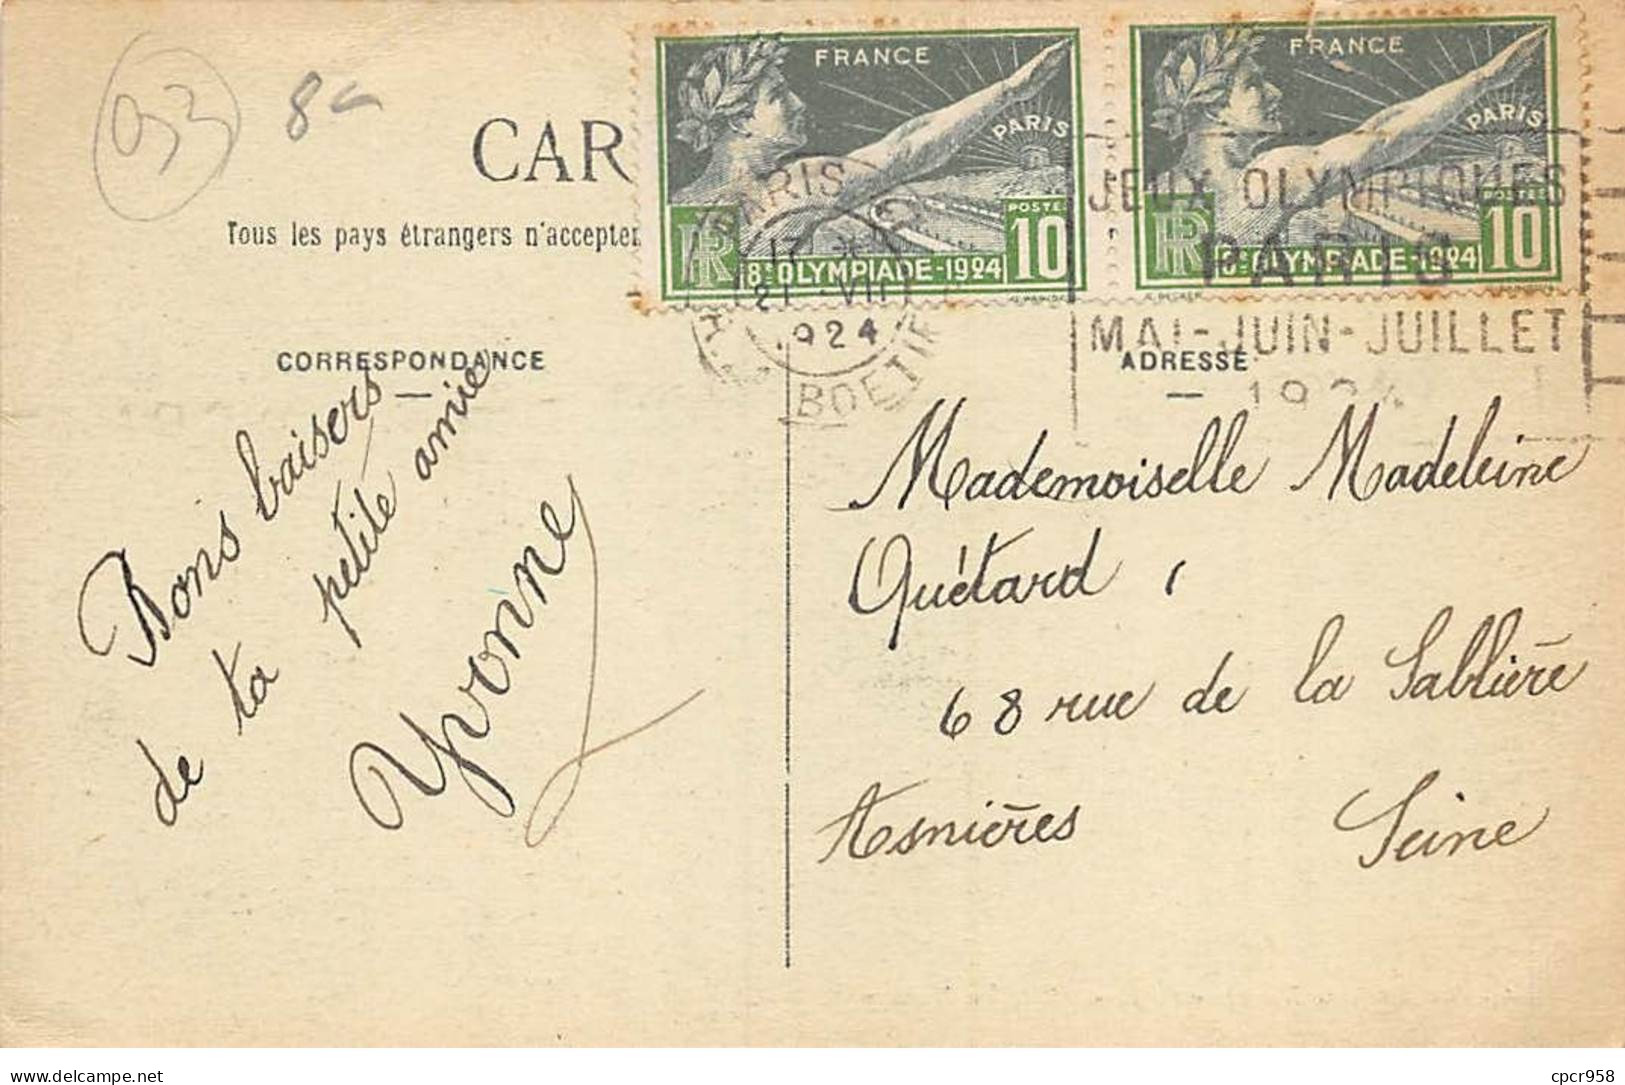 93
8
CAR
Tous les pays étrangers n'accepte
FRANCE
PARIS
RF
POSTES
8e OLYMPIADE-1924
10
FRANCE
PARIS
RF
POSTES
8e OLYMPIADE-1924
10
PARIS
17 *
21 VII
1924
BOETIE
JEUX OLYMPIQUES
PARIS
MAI-JUIN-JUILLET
1924
CORRESPONDANCE
ADRESSE
Bons baisers
de ta petite amie
Yvonne
Mademoiselle Madeleine
Quétard,
68 rue de la Sablière
Asnières Seine
delcampe.net
cpcr958